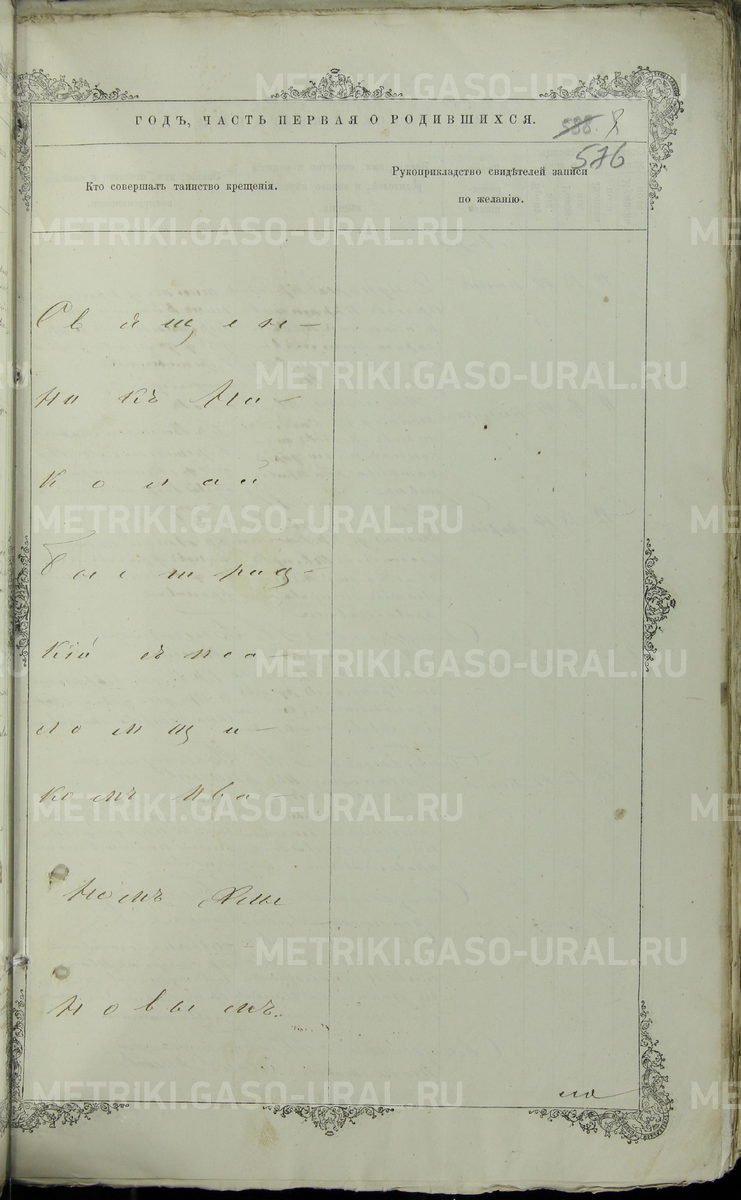 ГОДЪ, ЧАСТЬ ПЕРВАЯ О РОДИВШИХСЯ.
588. 8
576
Кто совершалъ таинство крещенія.
Рукоприкладство свидѣтелей записи
по желанію.
Священ-
никъ Ни-
колай
Быстриц-
кій съ пса-
ломщи-
комъ Ива-
номъ
новымъ.
METRIKI.GASO-URAL.RU